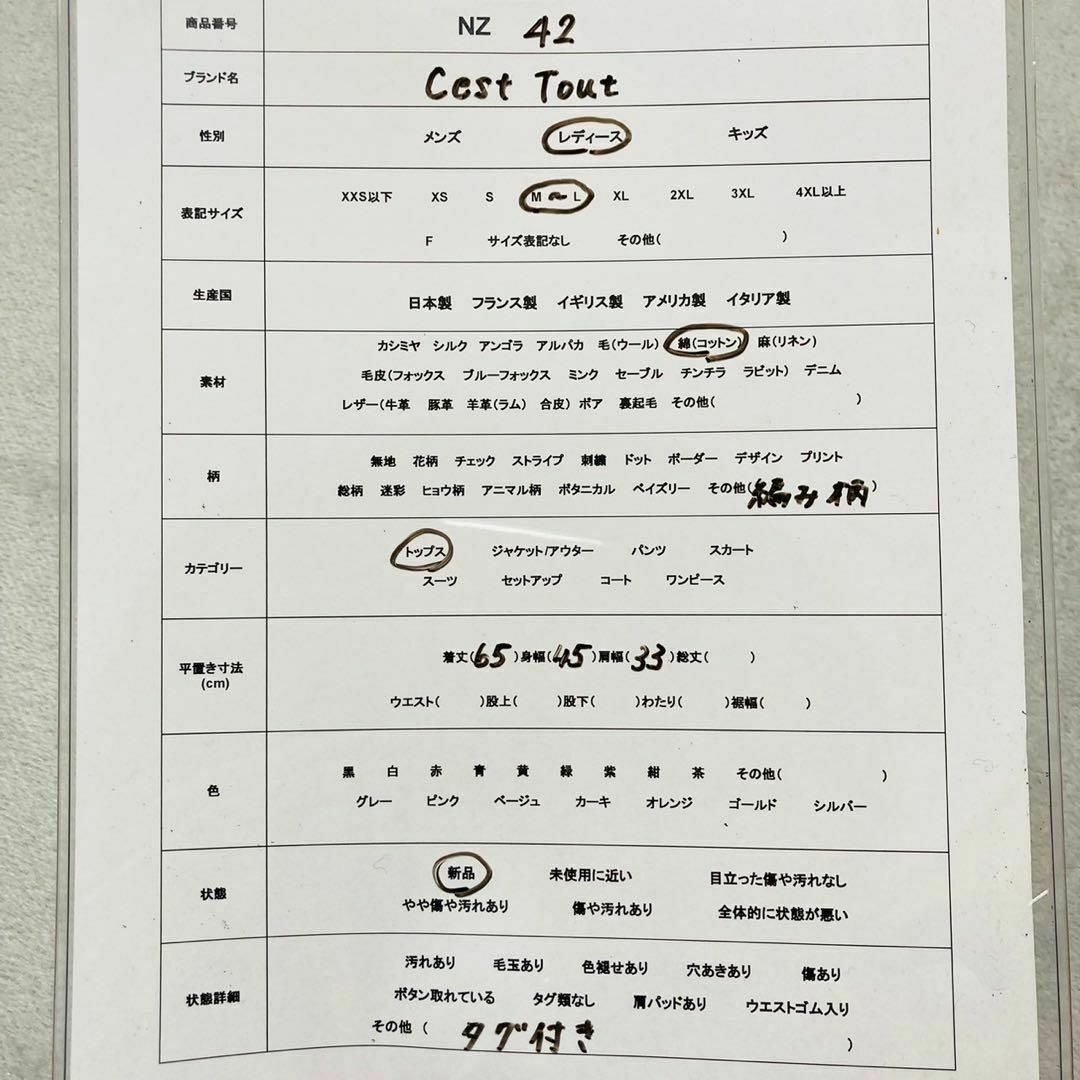 商品番号 NZ 42
ブランド名 Cest Tout
性別 メンズ レディース キッズ
表記サイズ
XXS以下 XS S M 〜 L XL 2XL 3XL 4XL以上
F サイズ表記なし その他( )
生産国 日本製 フランス製 イギリス製 アメリカ製 イタリア製
素材
カシミヤ シルク アンゴラ アルパカ 毛(ウール) 綿(コットン) 麻(リネン)
毛皮(フォックス ブルーフォックス ミンク セーブル チンチラ ラビット) デニム
レザー(牛革 豚革 羊革(ラム) 合皮) ボア 裏起毛 その他( )
柄
無地 花柄 チェック ストライプ 刺繍 ドット ボーダー デザイン プリント
総柄 迷彩 ヒョウ柄 アニマル柄 ボタニカル ペイズリー その他(編み柄)
カテゴリー
トップス ジャケット/アウター パンツ スカート
スーツ セットアップ コート ワンピース
平置き寸法
(cm)
着丈(65)身幅(45)肩幅(33)総丈( )
ウエスト( )股上( )股下( )わたり( )裾幅( )
色
黒 白 赤 青 黄 緑 紫 紺 茶 その他( )
グレー ピンク ベージュ カーキ オレンジ ゴールド シルバー
状態
新品 未使用に近い 目立った傷や汚れなし
やや傷や汚れあり 傷や汚れあり 全体的に状態が悪い
状態詳細
汚れあり 毛玉あり 色褪せあり 穴あきあり 傷あり
ボタン取れている タグ類なし 肩パッドあり ウエストゴム入り
その他 ( タグ付き )